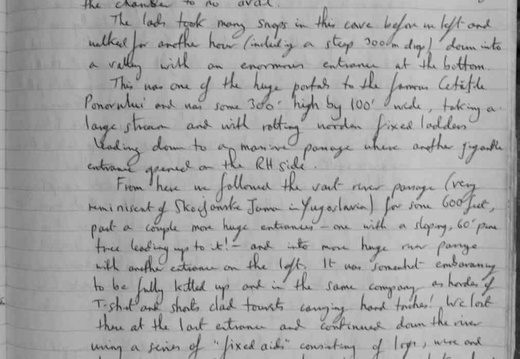 the chamber to no avail.
The lads took many snaps in this cave before we left and
walked for another hour (including a steep 300m drop) down into
a valley with an enormous entrance at the bottom.
This was one of the huge portals to the famous Cetățile
Ponorului and was some 300' high by 100' wide, taking a
large stream and with rotting wooden fixed ladders
leading down to a massive passage where another gigantic
entrance opened on the RH side.
From here we followed the vast river passage (very
reminiscent of Skocjanske Jama in Yugoslavia) for some 600 feet,
past a couple more huge entrances - one with a sloping, 60' pine
tree leading up to it! - and into more huge river passage
with another entrance on the left. It was somewhat embarrassing
to be fully kitted up and in the same company as hordes of
T-shirt and shorts clad tourists carrying hand torches! We lost
these at the last entrance and continued down the river
using a series of "fixed aids" consisting of logs, wire and